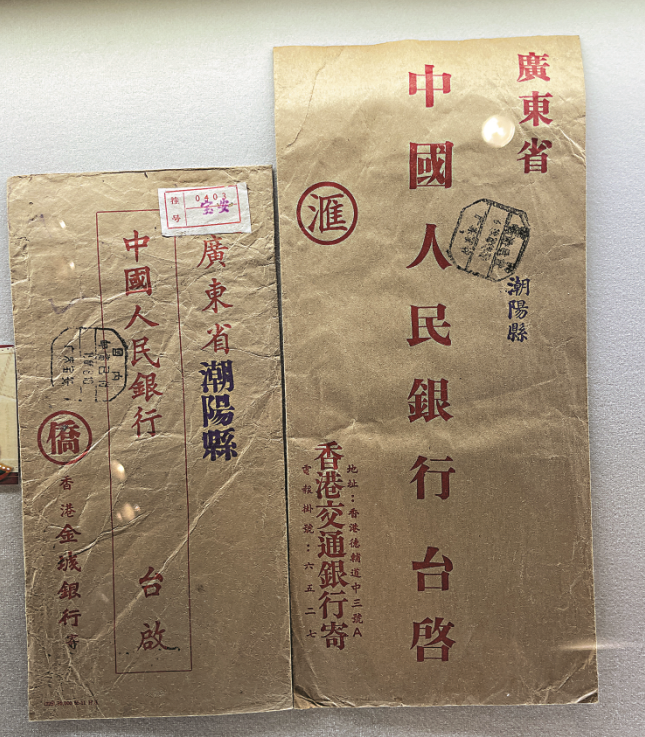 廣東省
潮陽縣
中國人民銀行台啓
滙
地址：香港德輔道中三號A
香港交通銀行寄
電報掛號：六五二七
挂号
0403
宝安
廣東省潮陽縣
中國人民銀行 台啟
僑
香港金城銀行寄